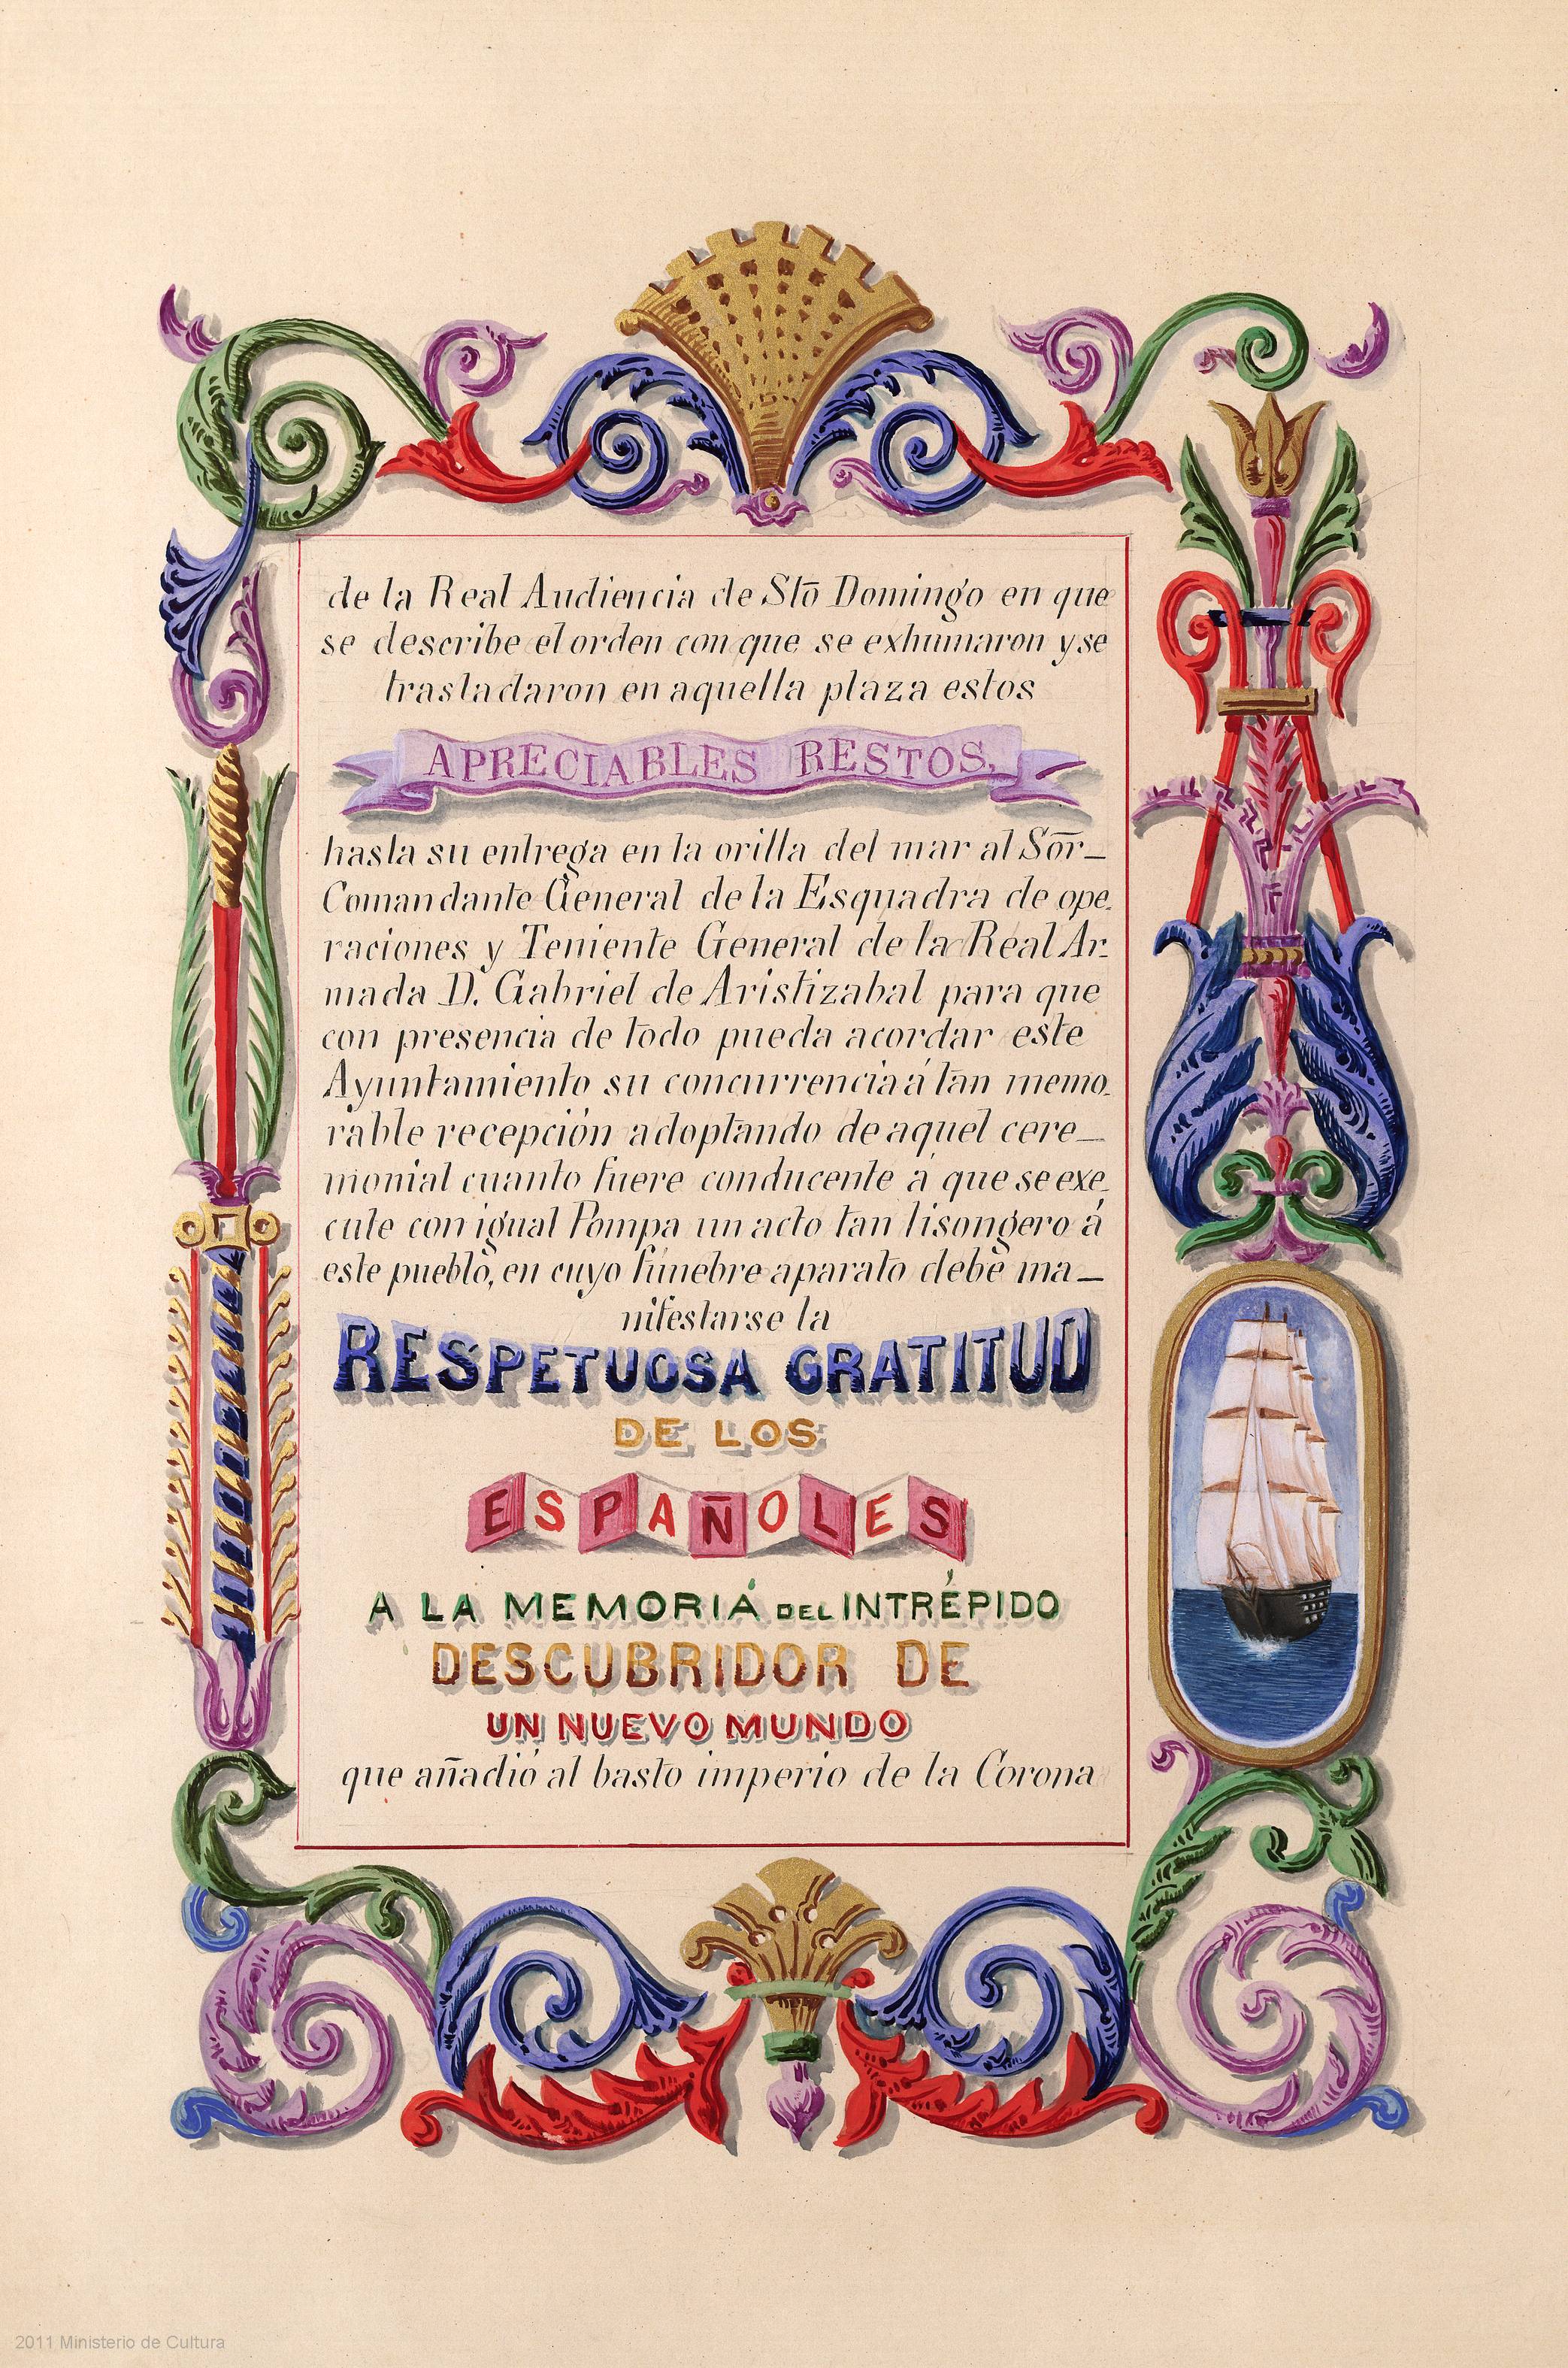 de la Real Audiencia de Stō Domingo en que
se describe el orden con que se exhumaron y se
trasladaron en aquella plaza estos
APRECIABLES RESTOS,
hasta su entrega en la orilla del mar al Sōr_
Comandante General de la Esquadra de ope.
raciones y Teniente General de la Real Ar.
mada D. Gabriel de Aristizabal para que
con presencia de todo pueda acordar este
Ayuntamiento su concurrencia á tan memo.
rable recepción adoptando de aquel cere_
monial cuanto fuere conducente á que se exe.
cute con igual Pompa un acto tan lisongero á
este pueblo, en cuyo fúnebre aparato debe ma_
nifestarse la
RESPETUOSA GRATITUD
DE LOS
ESPAÑOLES
A LA MEMORIA DEL INTRÉPIDO
DESCUBRIDOR DE
UN NUEVO MUNDO
que añadió al basto imperio de la Corona
2011 Ministerio de Cultura